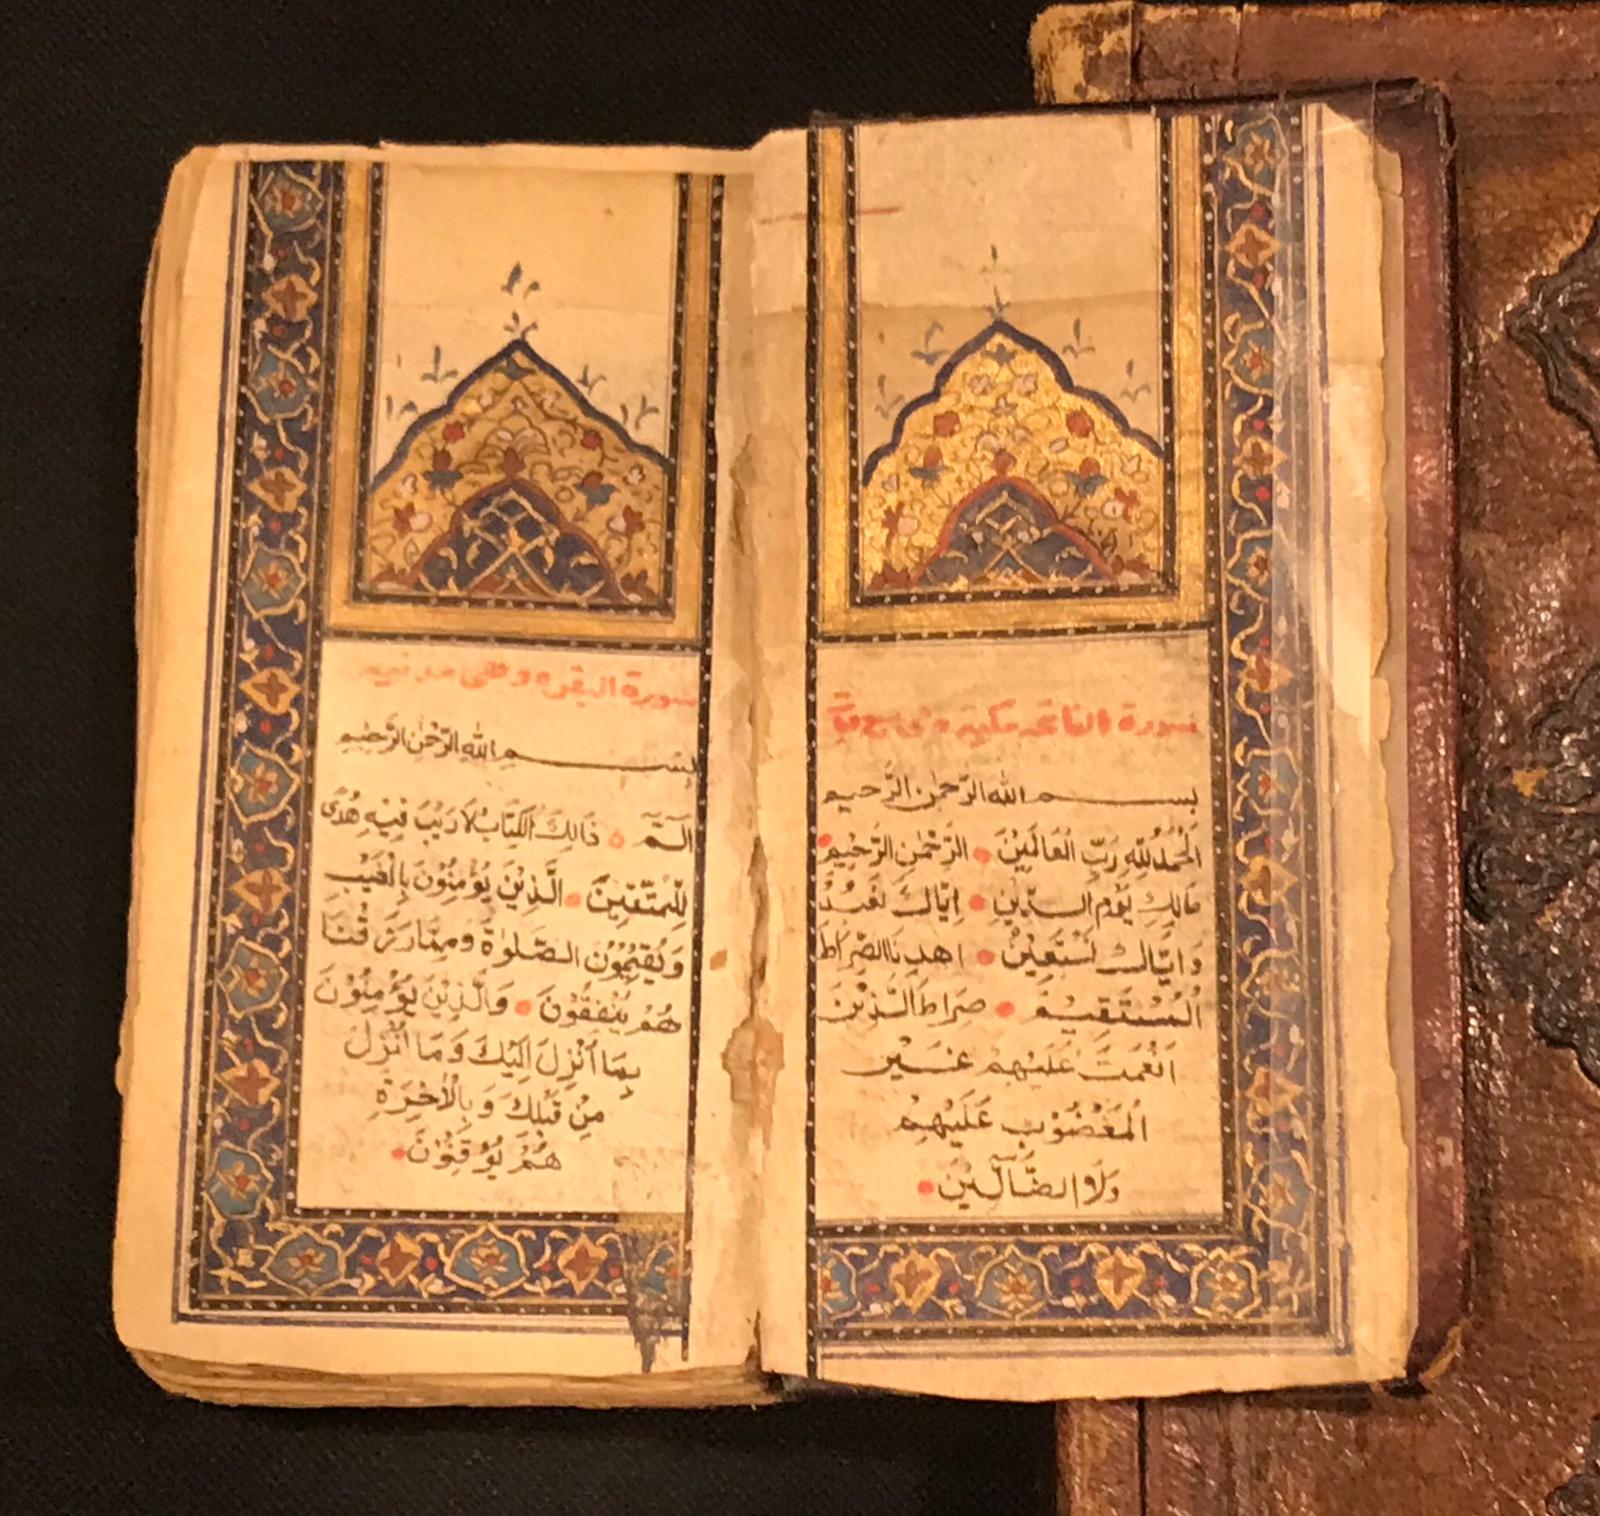 سورة الفاتحه مكيه وهي سبع
بسم الله الرَّحمٰن الرَّحيم
اَلْحَمْدُ لِلّٰهِ رَبِّ الْعَالَمِيْنَ الرَّحْمٰنِ الرَّحِيْمِ
مَالِكِ يَوْمِ الدِّيْنِ اِيَّاكَ نَعْبُدُ
وَاِيَّاكَ نَسْتَعِيْنُ اِهْدِنَا الصِّرَاطَ
الْمُسْتَقِيْمَ صِرَاطَ الَّذِيْنَ
اَنْعَمْتَ عَلَيْهِمْ غَيْرِ
الْمَغْضُوْبِ عَلَيْهِمْ
وَلَا الضَّآلِّيْنَ
سورة البقره وهى مدنيه
بسم الله الرَّحْمٰنِ الرَّحِيْمِ
الٓمّٓ ذَالِكَ الْكِتَابُ لَا رَيْبَ فِيْهِ هُدًى
لِلْمُتَّقِيْنَ الَّذِيْنَ يُؤْمِنُوْنَ بِالْغَيْبِ
وَيُقِيْمُوْنَ الصَّلٰوةَ وَمِمَّا رَزَقْنَا
هُمْ يُنْفِقُوْنَ وَالَّذِيْنَ يُؤْمِنُوْنَ
بِمَا اُنْزِلَ اِلَيْكَ وَمَا اُنْزِلَ
مِنْ قَبْلِكَ وَبِالْاٰخِرَةِ
هُمْ يُوْقِنُوْنَ